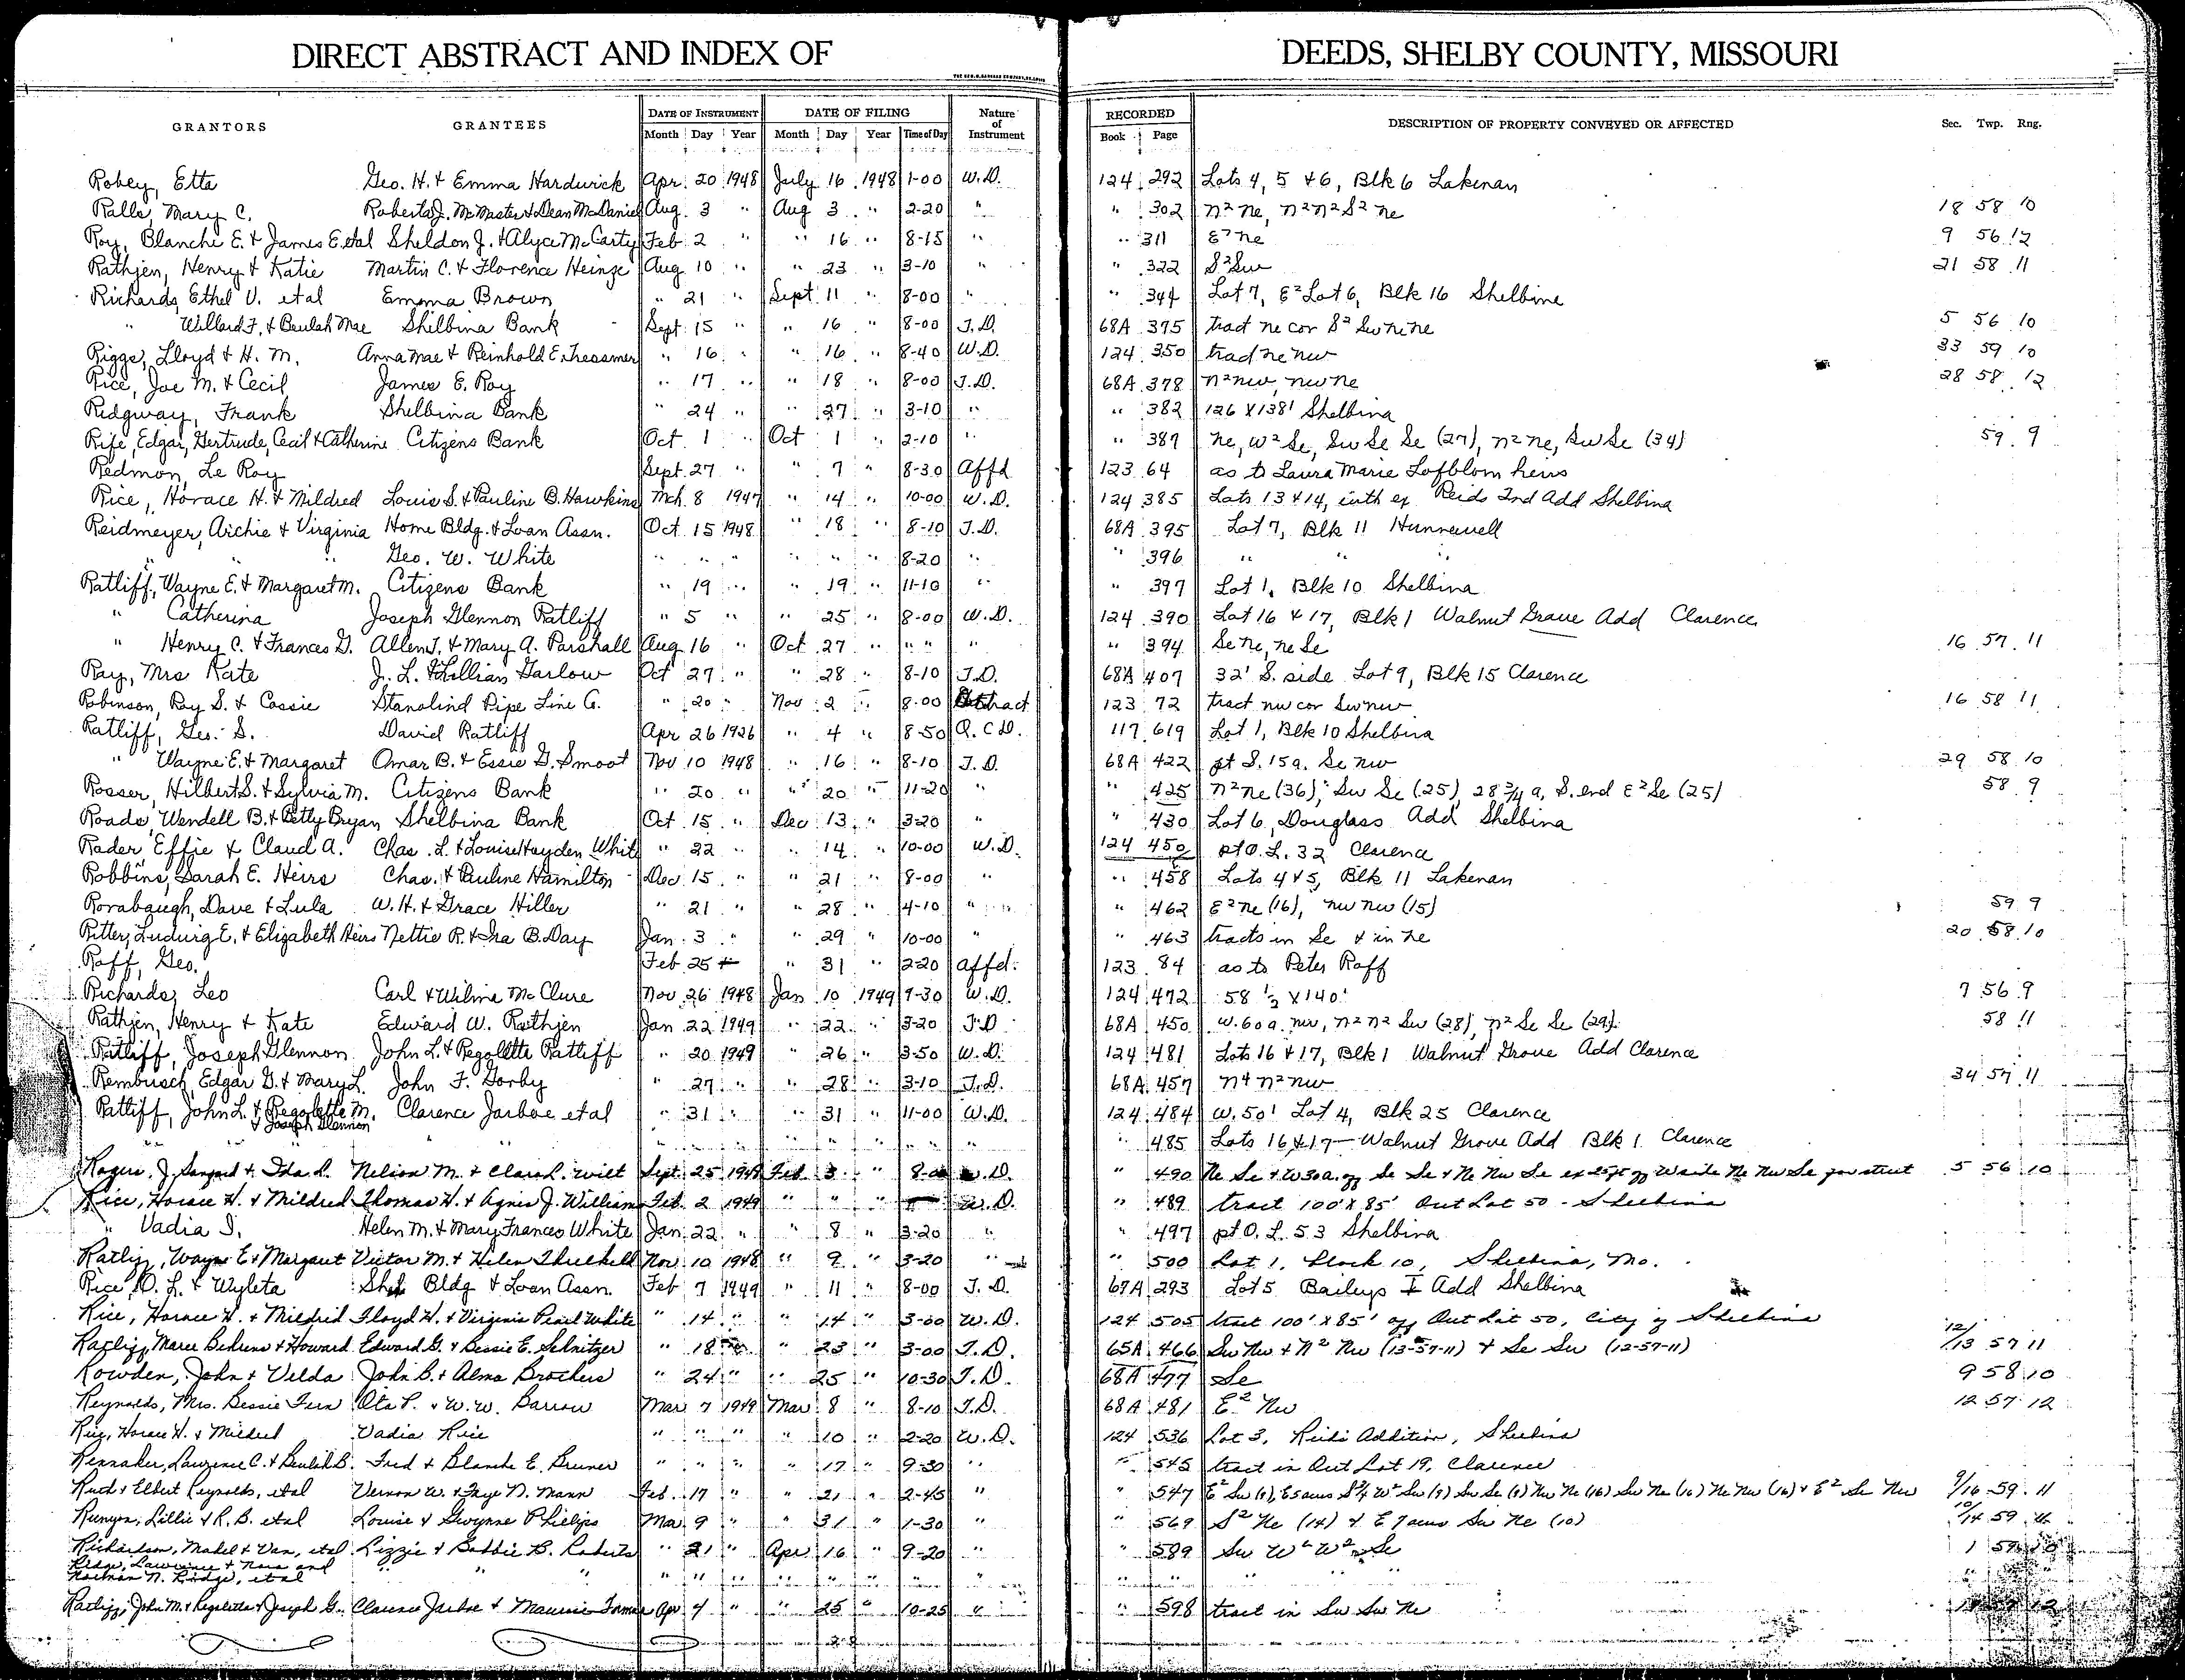 DIRECT ABSTRACT AND INDEX OF DEEDS, SHELBY COUNTY, MISSOURI
GRANTORS GRANTEES DATE OF INSTRUMENT DATE OF FILING Nature of Instrument RECORDED DESCRIPTION OF PROPERTY CONVEYED OR AFFECTED Sec. Twp. Rng.
Month Day Year Month Day Year Time of Day Book Page
Robey, Etta Geo. H. & Emma Hardwick Apr. 20 1948 July 16 1948 1-00 W.D. 124 292 Lots 4, 5 & 6, Blk 6 Lakenan
Ralls, Mary C. Roberta J. McMaster & Dean McDaniel Aug. 3 " Aug 3 " 2-20 " " 302 N2 Ne, N2 N2 S2 Ne 18 58 10
Roy, Blanche E. & James E. etal Sheldon J. & Alyce McCarty Feb 2 " " 16 " 8-15 " " 311 Ne 9 56 12
Rathjen, Henry & Katie Martin C. & Florence Heinze Aug 10 " " 23 " 3-10 " " 322 S2 Sw 21 58 11
Richards, Ethel V. etal Emma Brown " 21 " Sept 11 " 8-00 " " 344 Lot 7, E2 Lot 6, Blk 16 Shelbina
" Willard F. & Beulah Mae Shelbina Bank Sept 15 " " 16 " 8-00 T.D. 68A 375 tract ne cor S2 Sw ne ne 5 56 10
Riggs, Lloyd & H. M. Anna Mae & Reinhold E. Tressmer " 16 " " 16 " 8-40 W.D. 124 350 tract ne nw 33 59 10
Rice, Joe M. & Cecil James E. Roy " 17 " " 18 " 8-00 T.D. 68A 378 N2 nw, nw ne 28 58 12
Ridgway, Frank Shelbina Bank " 24 " " 27 " 3-10 " " 382 126 X 138' Shelbina
Rife, Edgar, Gertrude, Cecil & Catherine Citizens Bank Oct 1 " Oct 1 " 2-10 " " 387 ne, W2 Se, Sw Se Se (27), N2 ne, Sw Se (34) 59 9
Redmon, Le Roy Sept. 27 " " 7 " 8-30 Affd 123 64 as to Laura Marie Lofblom heirs
Rice, Horace H. & Mildred Louis S. & Pauline B. Hawkins Mch 8 1947 " 14 " 10-00 W.D. 124 385 Lots 13 & 14, with ex Reids 2nd Add Shelbina
Reidmeyer, Archie & Virginia Home Bldg. & Loan Assn. Oct 15 1948 " 18 " 8-10 T.D. 68A 395 Lot 7, Blk 11 Hunnewell
" " " Geo. W. White " " " " " " 8-20 " " 396 " " "
Ratliff, Wayne E. & Margaret M. Citizens Bank " 19 " " 19 " 11-10 " " 397 Lot 1, Blk 10 Shelbina
" Catherina Joseph Glennon Ratliff " 5 " " 25 " 8-00 W.D. 124 390 Lot 16 & 17, Blk 1 Walnut Grove Add Clarence
" Henry C. & Frances G. Allen T. & Mary A. Parshall Aug 16 " Oct 27 " " " " " 394 Se Ne, ne Se 16 57 11
Ray, Mrs Kate J. L. & Lillian Garlow Oct 27 " " 28 " 8-10 T.D. 68A 407 32' S. side Lot 9, Blk 15 Clarence
Robinson, Roy S. & Cassie Stanolind Pipe Line Co. " 20 " Nov 2 " 8-00 123 72 tract nw cor Sw nw 16 58 11
Ratliff, Geo. S. David Ratliff Apr 26 1926 " 4 " 8-50 Q.C.D. 117 619 Lot 1, Blk 10 Shelbina
" Wayne E. & Margaret Omar B. & Essie G. Smoot Nov 10 1948 " 16 " 8-10 T.D. 68A 422 pt S. 15a. Se nw 29 58 10
Rosser, Hilbert S. & Sylvia M. Citizens Bank " 20 " " 20 " 11-20 " " 425 N2 ne (36), Sw Se (25), 28 3/4 a, S. end E2 Se (25) 58 9
Roads, Wendell B. & Betty Bryan Shelbina Bank Oct. 15 " Dec 13 " 3-20 " " 430 Lot 6, Douglass Add Shelbina
Rader, Effie & Claud A. Chas. L. & Louise Hayden White " 22 " " 14 " 10-00 W.D. 124 450 pt O.L. 32 Clarence
Robbins, Sarah E. Heirs Chas. & Pauline Hamilton Dec 15 " " 21 " 8-00 " " 458 Lots 4 & 5, Blk 11 Lakenan
Rorabaugh, Dave & Lula W. H. & Grace Hiller " 21 " " 28 " 4-10 " " 462 E2 ne (16), nw nw (15) 59 9
Ritter, Ludwig E. & Elizabeth Heirs Nettie R. & Ira B. Day Jan. 3 " " 29 " 10-00 " " 463 tracts in Se & in ne 20 58 10
Raff, Geo. Feb 25 " 31 " 2-20 affd. 123 84 as to Peter Raff
Richards, Leo Carl & Wilma McClure Nov 26 1948 Jan 10 1949 9-30 W.D. 124 472 58 1/2 X 140' 7 56 9
Rathjen, Henry & Kate Edward W. Rathjen Jan 22 1949 " 22 " 3-20 T.D 68A 450 W. 60 a. nw, N2 N2 Sw (28), N2 Se Se (29) 58 11
Ratliff, Joseph Glennon John L. & Regolette Ratliff " 20 1949 " 26 " 3-50 W.D. 124 481 Lots 16 & 17, Blk 1 Walnut Grove Add Clarence
Rembusch, Edgar G. & Mary L. John F. Gorby " 27 " " 28 " 3-10 T.D. 68A 457 N4 N2 nw 34 57 11
Ratliff, John L. & Regolette M. Clarence Jarboe etal " 31 " " 31 " 11-00 W.D. 124 484 W. 50' Lot 4, Blk 25 Clarence
& Joseph Glennon
" " " " " " " " " " " 485 Lots 16 & 17 - Walnut Grove Add Blk 1 Clarence
Rogers, J. Sanford & Ida L. Nelson M. & Clara L. Wilt Sept. 25 1948 Feb 3 " 8-00 W.D. " 490 Ne Se & W30a. off Se Se & Ne Nw Se ex 25 ft off W side Ne Nw Se for street 5 56 10
Rice, Horace H. & Mildred Thomas H. & Agnes J. William Feb. 2 1949 " " " W.D. " 489 tract 100' X 85' Out Lot 50 - Shelbina
" Vadia I. Helen M. & Mary Frances White Jan. 22 " " 8 " 3-20 " " 497 pt O.L. 53 Shelbina
Ratliff, Wayne E & Margaret Victor M. & Helen Threlkeld Nov. 10 1948 " 9 " 3-20 " " 500 Lot 1, Block 10, Shelbina, Mo.
Rice, O. L. & Wyleta Bldg & Loan Assn. Feb 7 1949 " 11 " 8-00 T.D. 67A 293 Lot 5 Baileys Add Shelbina
Rice, Horace H. & Mildred Floyd H. & Virginia Pearl White " 14 " " 14 " 3-00 W.D. 124 505 tract 100' X 85' off Out Lot 50, City of Shelbina
Ratliff, Maree Behrens & Howard Edward G. & Bessie E. Schnitzer " 18 " " 23 " 3-00 T.D. 65A 466 Sw Nw & N2 Nw (13-57-11) & Se Sw (12-57-11) 12/13 57 11
Rowden, John & Velda John B. & Alma Brockers " 24 " " 25 " 10-30 T.D. 68A 477 Se 9 58 10
Reynolds, Mrs. Bessie Fern Ota P. & W. W. Barrow Mar 7 1949 Mar 8 " 8-10 T.D. 68A 481 E2 Nw 12 57 12
Rice, Horace H. & Mildred Vadia Rice " " " " 10 " 2-20 W.D. 124 536 Lot 3, Reids Addition, Shelbina
Rennaker, Lawrence C. & Beulah B. Fred & Blanche E. Bruner " " " " 17 " 9-30 " " 545 tract in Out Lot 19, Clarence
Ruth & Elbert Reynolds, etal Vernon W. & Faye N. Mann Feb. 17 " " 21 " 2-45 " " 547 9/16 59 11
Runyon, Lillie & R. B. etal Louise & Gwynne Phelps Mar 9 " " 31 " 1-30 " " 569 S2 Ne (14) & E 7 acres Sw Ne (10) 10/14 59 11
Richardson, Mabel & Van, etal Lizzie & Bobbie B. Roberts " 21 " Apr 16 " 9-20 " " 589 Sw W2 W2 Se 1
Ridge, Lawrence & Nora and
Norman N. Ridge, etal " " " " "
Ratliff, John M. & Regoletta & Joseph G. Clarence Jarboe & Maurice Apr 4 " " 25 " 10-25 " " 598 tract in Sw Sw Ne